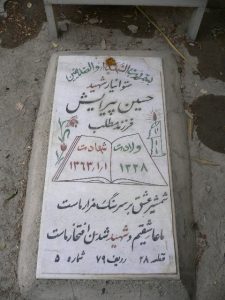 ستوانیار شهید
حسین پیرایش
فرزند مطلب
ولادت شهادت
۱۳۲۸ ۱۳۶۳/۱/۱
شمشیر عشق بر سر سنگ مزار ماست
ما عاشقیم و شهید شدن افتخار ماست
قطعه ۲۸ ردیف ۷۹ شماره ۵